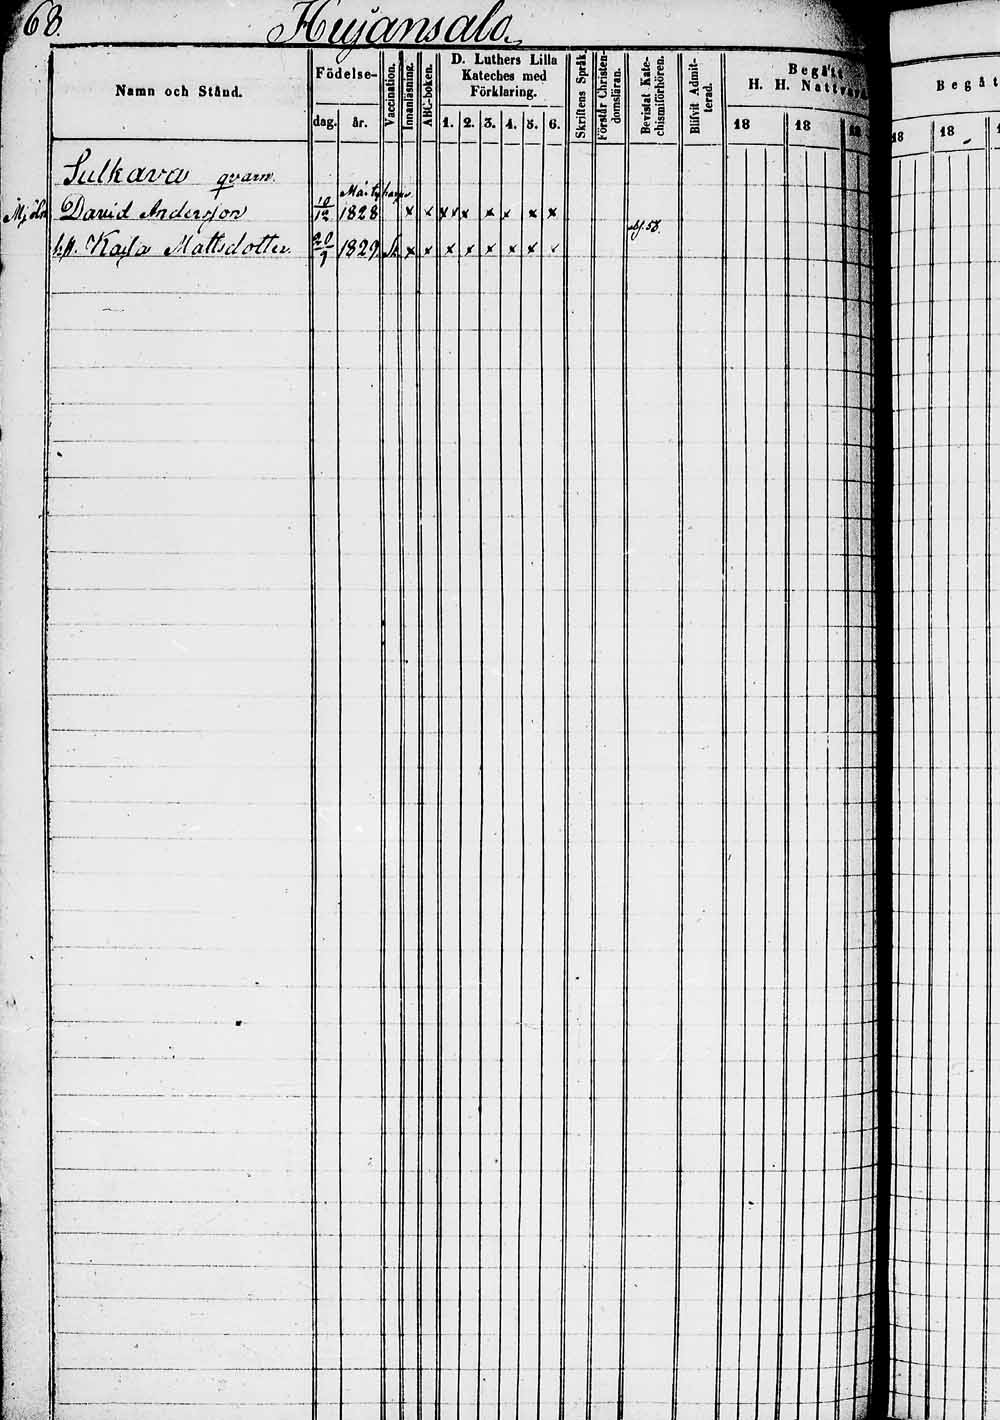 68.
Hujansalo.
Namn och Stånd.
Födelse-
dag. år.
Vaccination.
Innanläsning.
ABC-boken.
D. Luthers Lilla
Kateches med
Förklaring.
1. 2. 3. 4. 5. 6.
Skriftens Språk.
Förstår Christen-
domsläran.
Bevistat Kate-
chismiförhören.
Blifvit Admit-
terad.
Begått
H. H. Nattvard
18 18 18
Begåt
18 18
Sulkava qvarn.
David Andersson 10/12 1828 x x x x x x x x x
h. Kajsa Mattsdotter 20/9 1829. x x x x x x x x